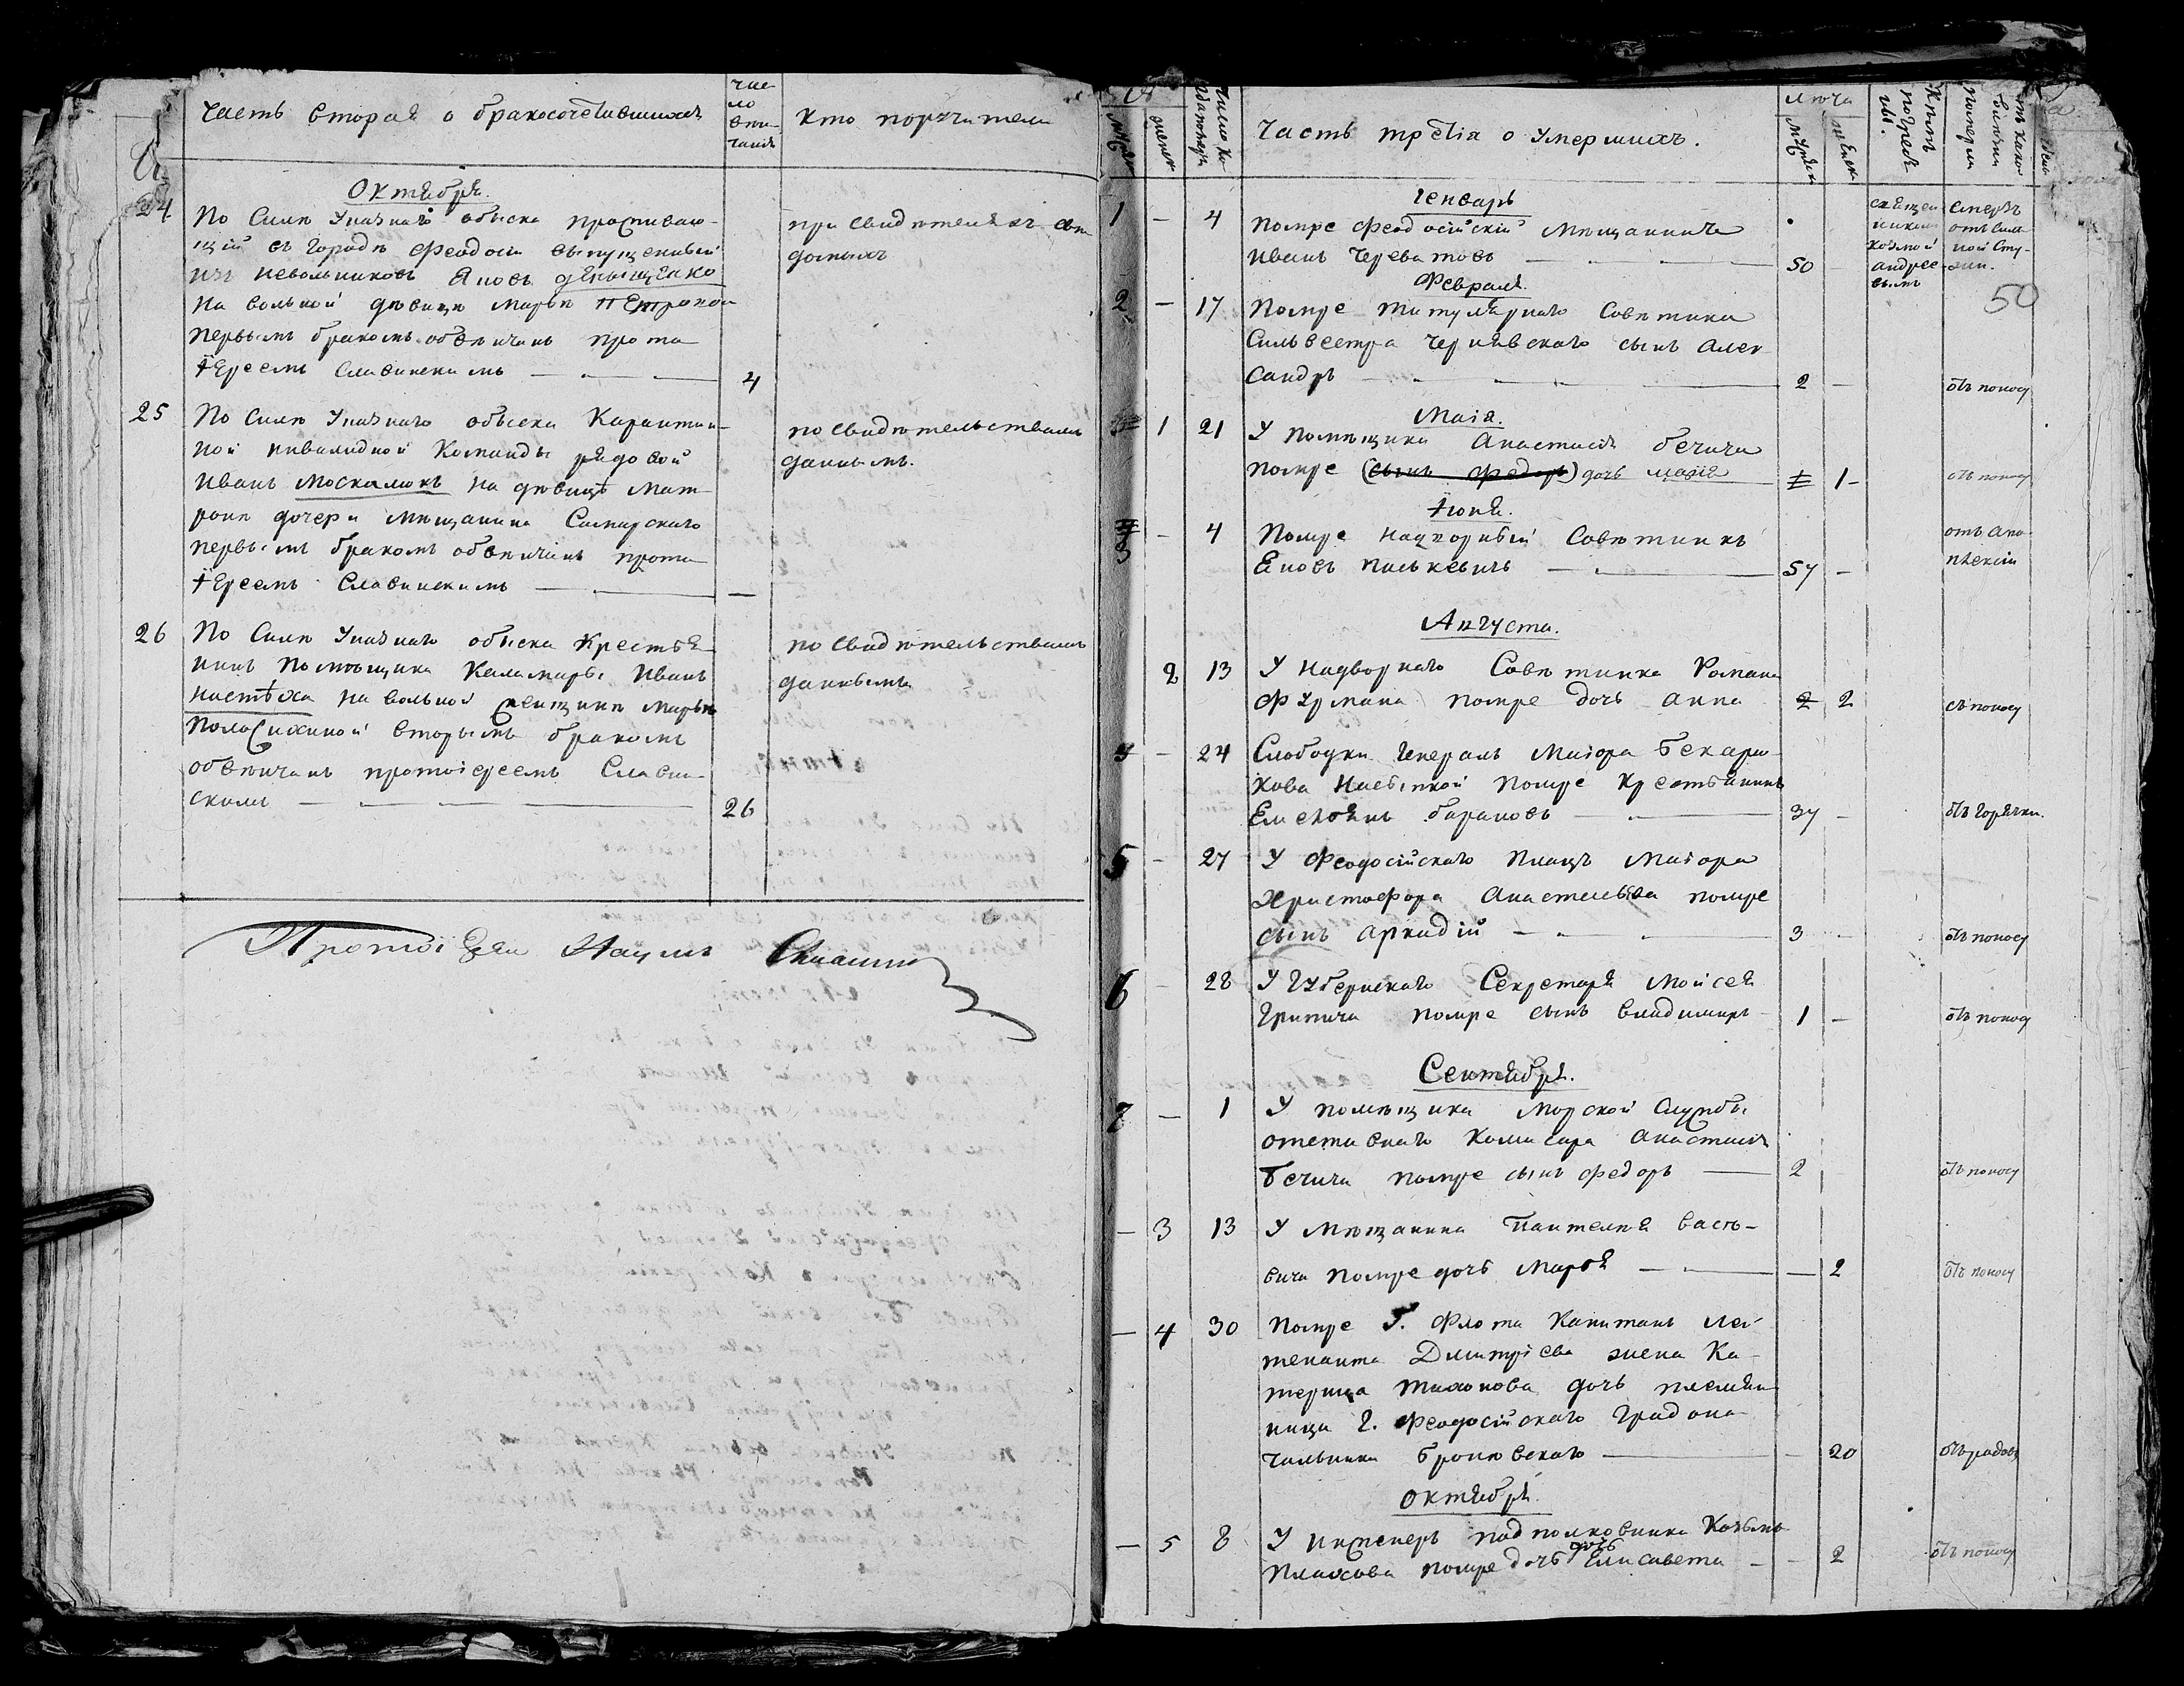 Часть вторая о бракосочетавшихся
Чис
ло
вѣн-
чанія
Кто поручители
Октября.
24
По Силѣ Указнаго обыска проживаю-
щій въ городѣ Феодосіи выпущенный
изъ невольниковъ Яковъ
на вольной дѣвицѣ Марьѣ Петровой
первымъ бракомъ обвѣнчанъ прото
іереемъ Славинскимъ
4
при свидѣтеляхъ
25
По Силѣ Указнаго обыска Карантин-
ной инвалидной Команды рядовой
Иванъ Москалюкъ на дѣвицѣ Мат-
ронѣ дочери мѣщанина Самарскаго
первымъ бракомъ обвѣнчанъ прото
іереемъ Славинскимъ
по свидѣтельствамъ
даннымъ.
26
По Силѣ Указнаго обыска Крестья-
нинъ помѣщика Каламары Иванъ
на вольной женщинѣ Марьѣ
вторымъ бракомъ
обвѣнчанъ протоіереемъ Славин-
скимъ
26
по свидѣтельствамъ
даннымъ
Протоіерей Наумъ
мужеск
женск
Число
Часть третія о умершихъ.
лѣта
мужеск
женск
Кѣмъ
погребе
ны.
отъ какой
болѣзни
померли
Генваръ
1 — 4
Помре Феодосійскій мѣщанинъ
Иванъ Череватовъ
50
священ
никомъ
Козмой
Андрее
вымъ
смерть
отъ силь
ной сту-
жи.
50
Февраля.
2 — 17
Помре титулярнаго Совѣтника
Сильвестра Чернявскаго сынъ Алек
сандръ
2 —
отъ поносу
Маія.
1 21
У помѣщика Анастасія Бечича
помре (сынъ Федоръ) дочь Марія
1 -
отъ поносу
Іюня.
3 - 4
Помре надворный Совѣтникъ
Яковъ Паскевичъ
57 -
отъ апо
плексіи
Августа.
2 13
У Надворнаго Совѣтника Романа
Фурмана помре дочь Анна
2 2
съ поносу
4 - 24
Слободки Генералъ Маіора Бекарю-
кова Насыпкой помре крестьянинъ
Емельянъ Барановъ
37 -
отъ горячки.
5 - 27
У Феодосійскаго Плацъ Маіора
Христофора Анастасьева помре
сынъ Аркадій
3 -
отъ поносу
6 - 28
У Губернскаго Секретаря Мойсея
Грипича помре сынъ Владимиръ
1 -
отъ поносу
Сентября.
7 — 1
У помѣщика Морской Службы
отставнаго Комисара Анастасія
Бечича помре сынъ Федоръ
2
отъ поносу
— 3 13
У Мѣщанина Пантелѣя Вась-
вича помре дочь Марья
— 2
отъ поносу
— 4 30
Помре Г. Флота Капитанъ Лей
тенанта Дмитріева жена Ка-
терина Тихонова дочь племян
ница Г. Феодосійскаго Градона
чальника Броневскаго
- 20
отъ родовъ
Октября.
— 5 8
У Инженеръ подполковника Козьмы
Плахова помре дочь Елисавета
- 2
отъ поносу